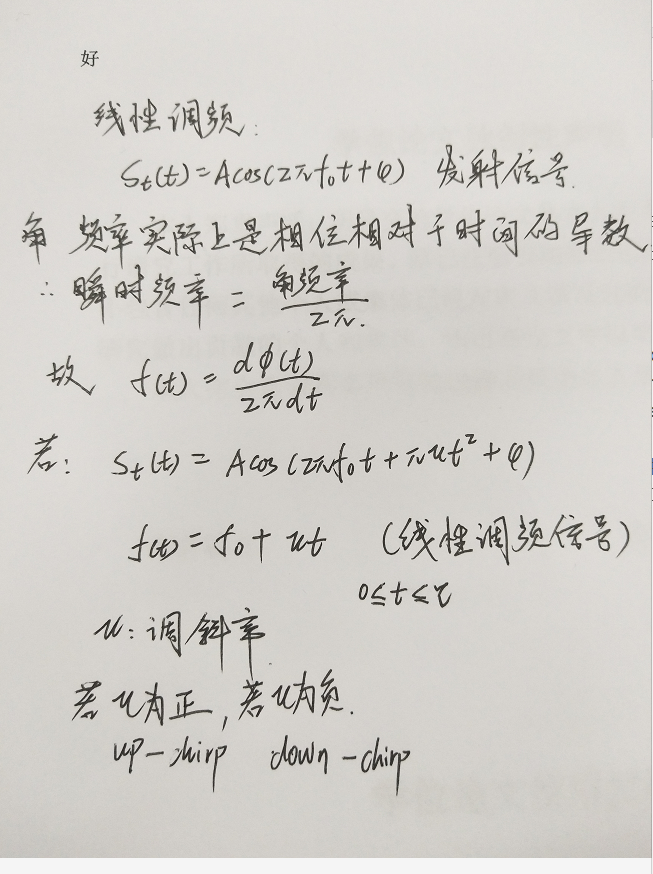 好
线性调频:
St(t)=Acos(2πf₀t+φ) 发射信号.
角频率实际上是相位相对于时间的导数
∴ 瞬时频率 = 角频率/2π.
故 f(t) = dϕ(t)/2πdt
若: St(t) = Acos(2πf₀t+πut²+φ)
f(t) = f₀+ut (线性调频信号)
0≤t≤τ
u:调斜率.
若u为正,若u为负.
up-chirp down-chirp